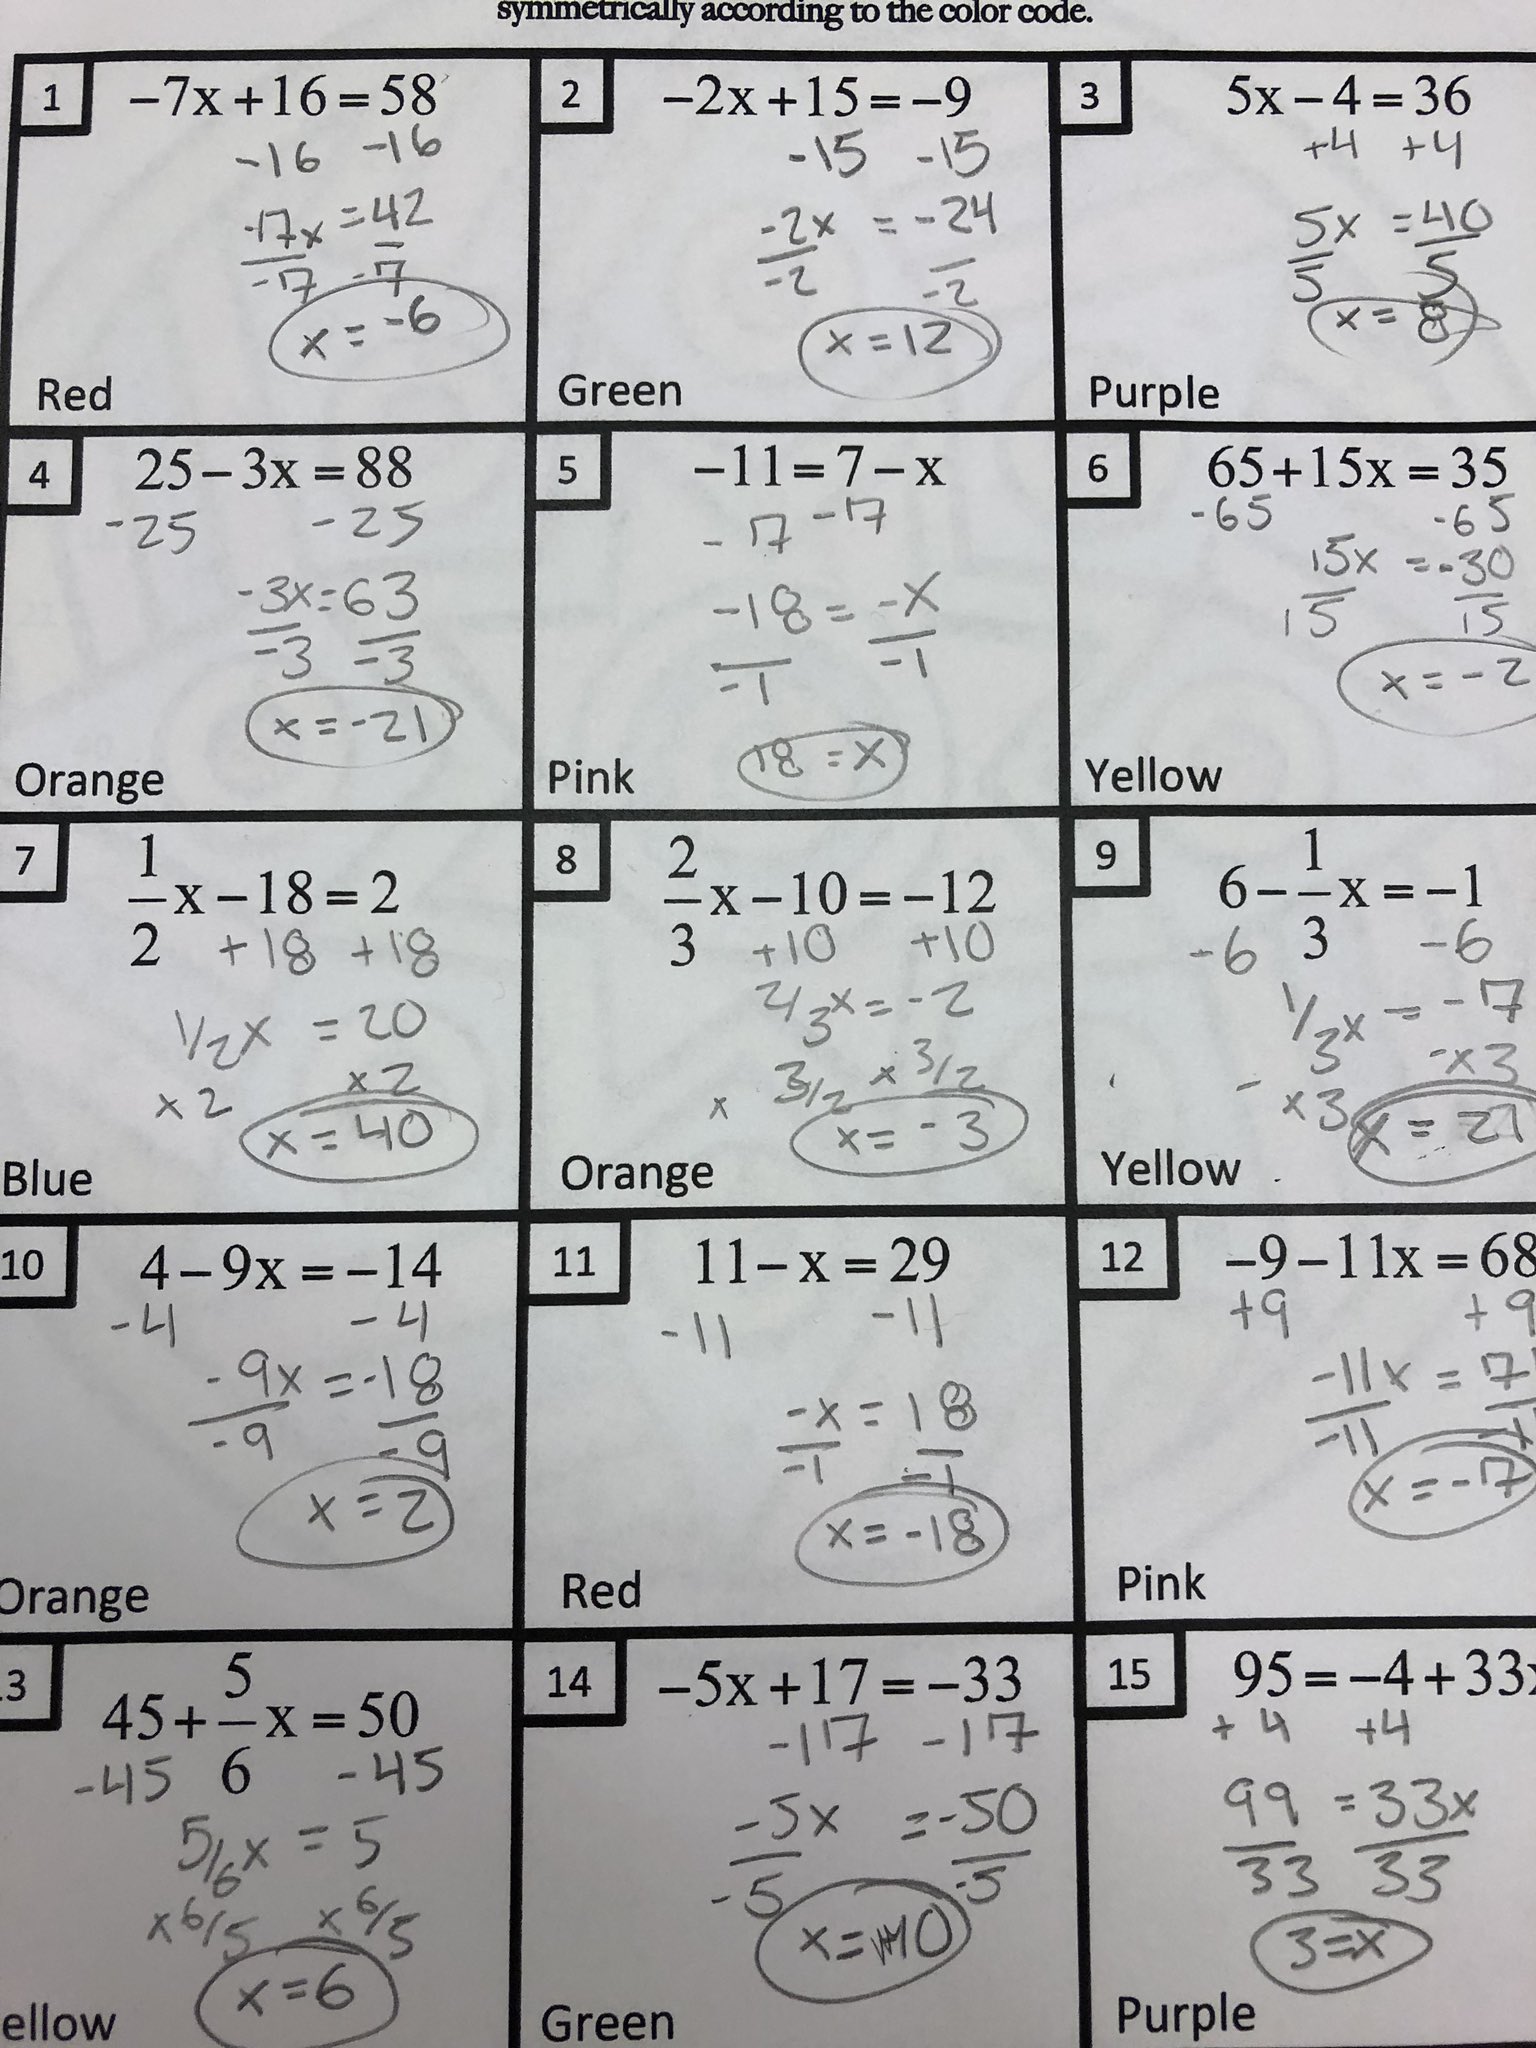 symmetrically according to the color code.
1
-7x+16=58
-16 -16
-7x =42
-7 -7
x = -6
Red
2
-2x+15=-9
-15 -15
-2x = -24
-2 -2
x = 12
Green
3
5x-4=36
+4 +4
5x = 40
5 5
x = 8
Purple
4
25-3x=88
-25 -25
-3x=63
-3 -3
x = -21
Orange
5
-11=7-x
-7 -7
-18 = -x
-1 -1
18 = x
Pink
6
65+15x=35
-65 -65
15x = -30
15 15
x = -2
Yellow
7
1/2 x-18=2
+18 +18
1/2x = 20
x2 x2
x = 40
Blue
8
2/3 x-10=-12
+10 +10
2/3x = -2
x 3/2 x 3/2
x = -3
Orange
9
6-1/3 x=-1
-6 -6
1/3x = -7
- x3 -x3
x = 21
Yellow
10
4-9x=-14
-4 -4
-9x = -18
-9 -9
x = 2
Orange
11
11-x=29
-11 -11
-x = 18
-1 -1
x = -18
Red
12
-9-11x=68
+9 +9
-11x = 7
-11
x = -7
Pink
3
45+5/6 x=50
-45 -45
5/6x = 5
x6/5 x6/5
x = 6
ellow
14
-5x+17=-33
-17 -17
-5x = -50
-5 -5
x = 10
Green
15
95=-4+33x
+4 +4
99 = 33x
33 33
3=x
Purple